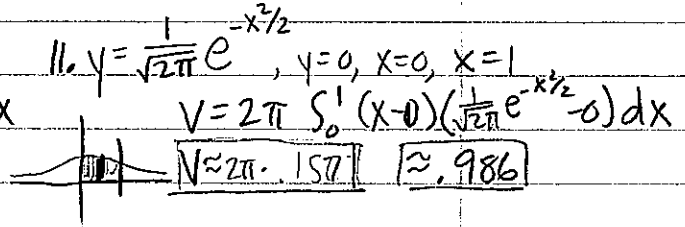 11. y = 1/√2π e^-x²/2, y=0, x=0, x=1
x V = 2π ∫₀¹ (x-0)(1/√2π e^-x²/2 - 0) dx
V≈2π· .157 ≈.986